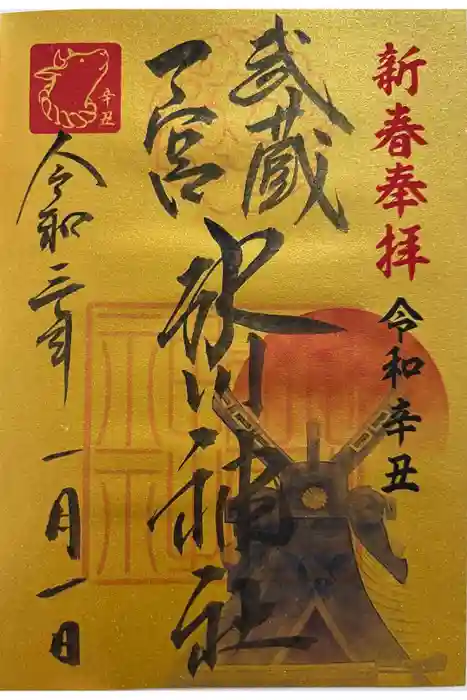 新春奉拝
令和辛丑
武蔵
一宮
氷川神社
辛丑
令和三年
一月一日